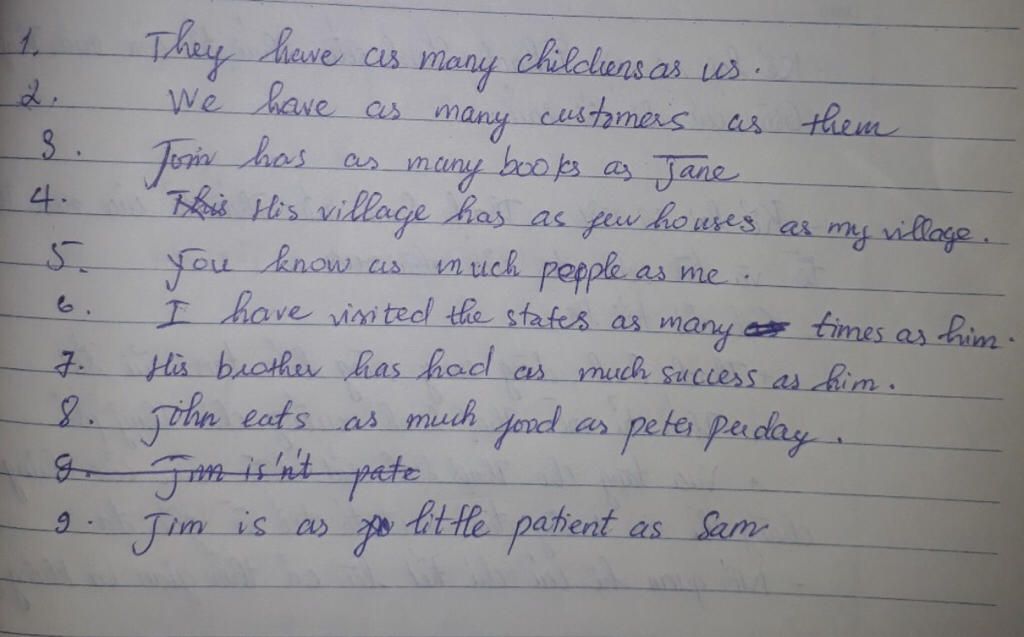 1. They have as many childrens as us.
2. We have as many customers as them
3. Tom has as many books as Jane
4. This His village has as few houses as my village.
5. You know as much people as me.
6. I have visited the states as many as times as him.
7. His brother has had as much success as him.
8. John eats as much food as peter per day.
9. Jim is'n't pate
9. Jim is as little patient as Sam